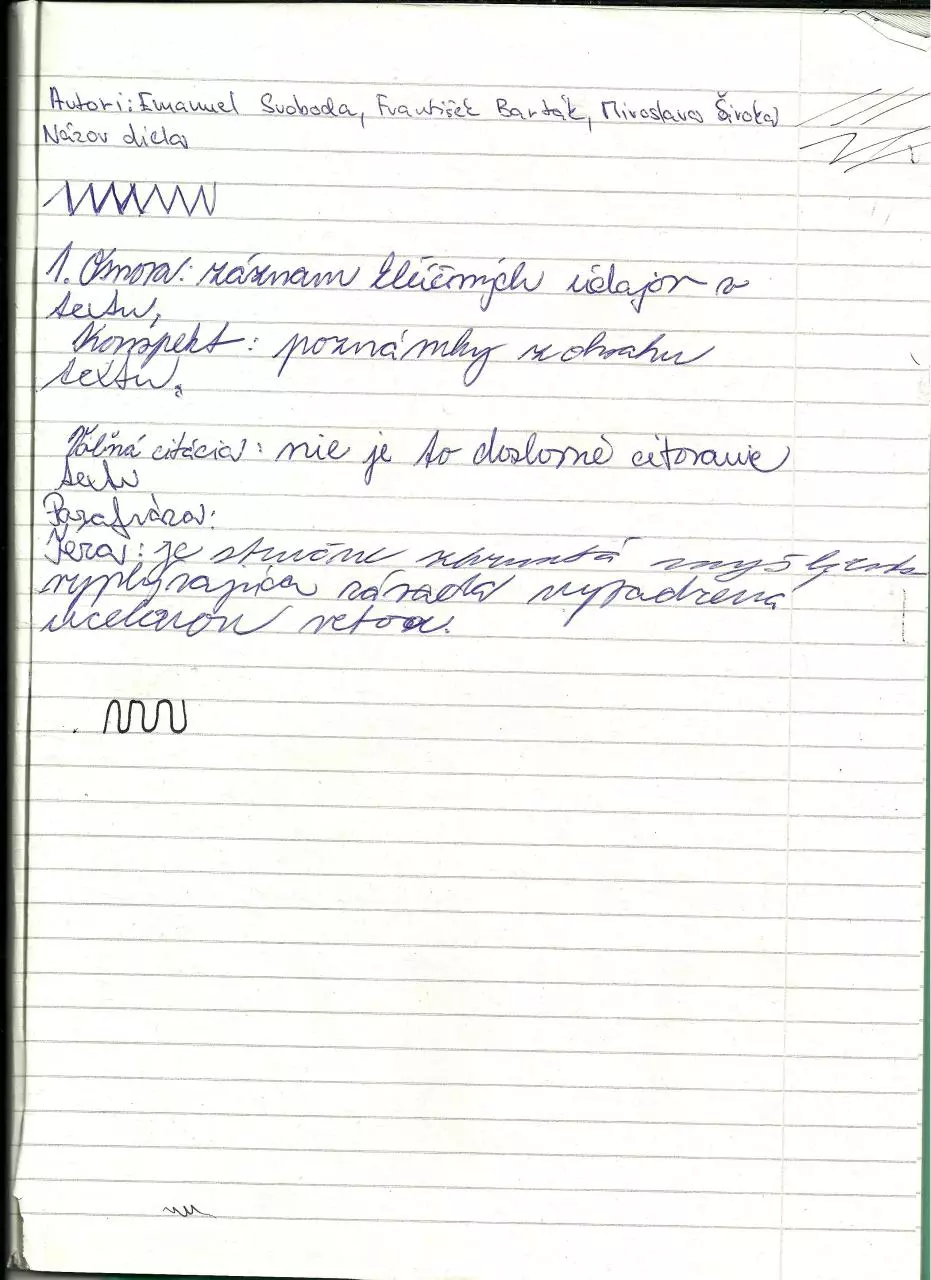 Autori: Emanuel Svoboda, František Barták, Miroslava Široká
Názov diela
1. Osnova: záznam kľúčových údajov z
textu,
Konspekt: poznámky z obsahu
textu.
Voľná citácia: nie je to doslovné citovanie
textu
Parafráza:
Téza: je stručne zhrnutá myšlienka
vyplývajúca zásada vyjadrená
vetou.